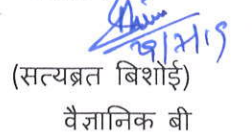 (सत्यब्रत बिशोई)
वैज्ञानिक बी